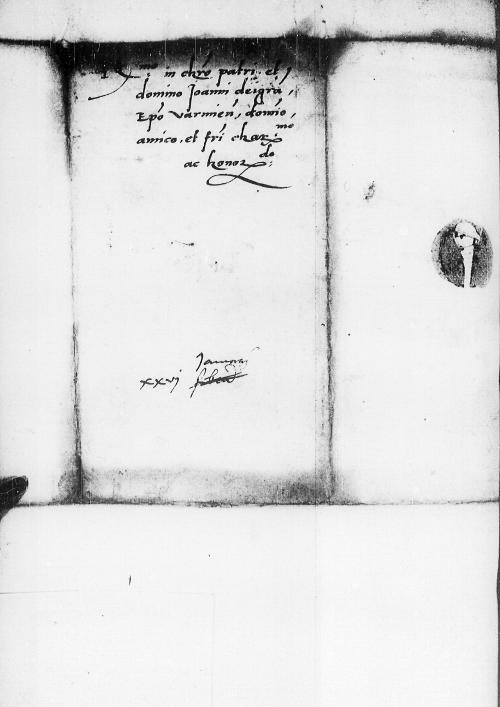 R.mo in chro patri. et
domino Joanni dei gra,
Epo Varmien, domino,
amico. et fri char.mo
ac honor.do
Januarii
xxvj